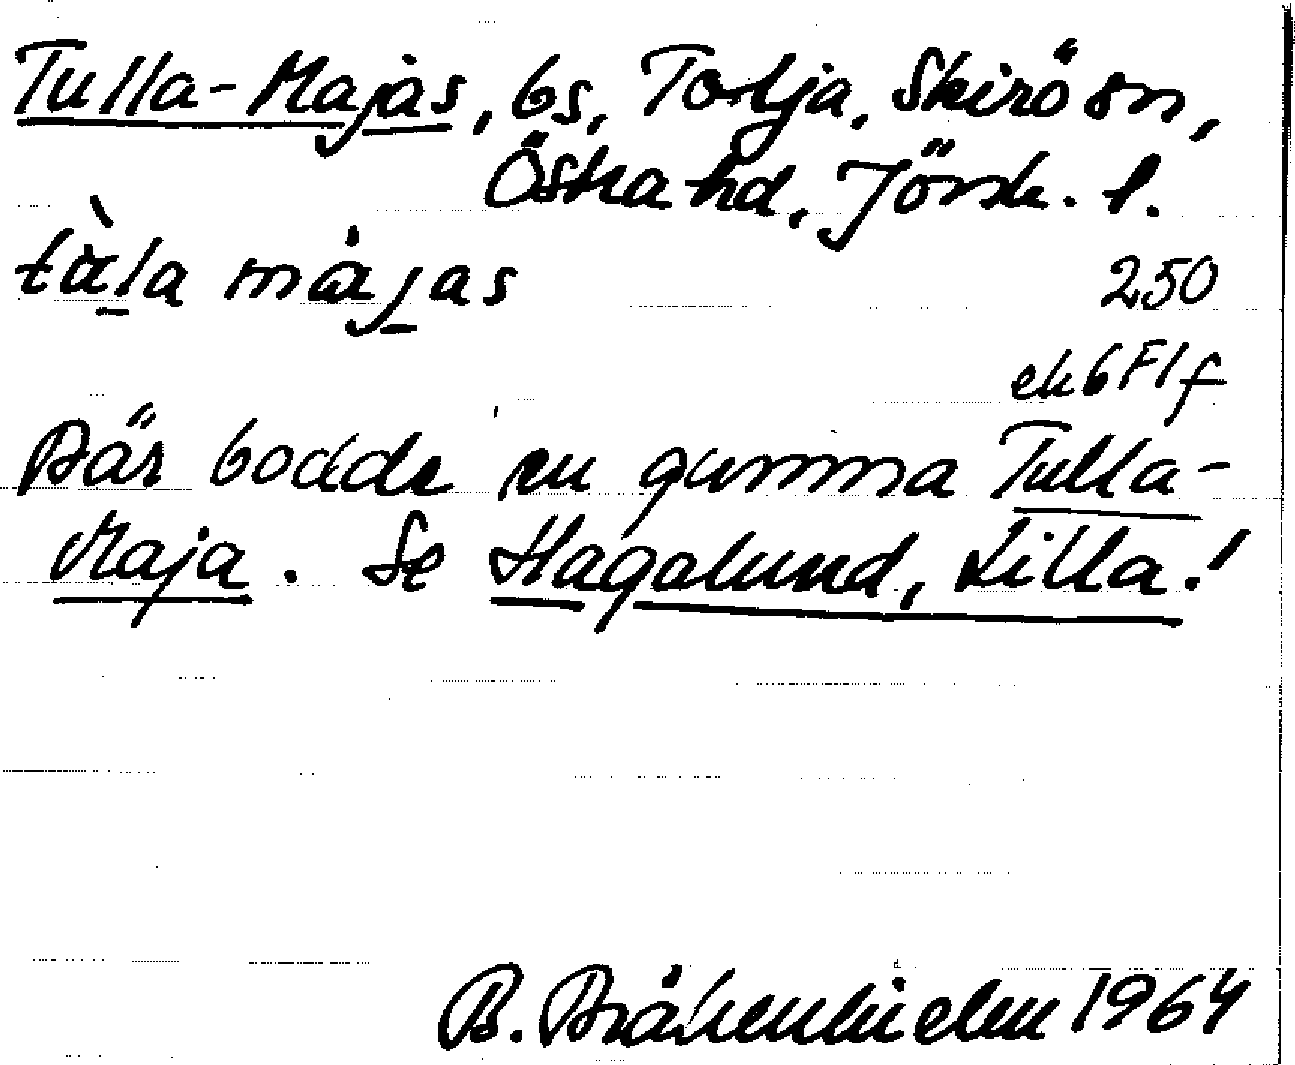 Tulla-Majas, bs, Torlja, Skirö sn,
Östra hd, Jönk. l.
tàla màjas
250
ek 6 F 1 f
Där bodde en gumma Tulla-
Maja. Se Hagalund, Lilla!
B. Bråkenhielm 1964